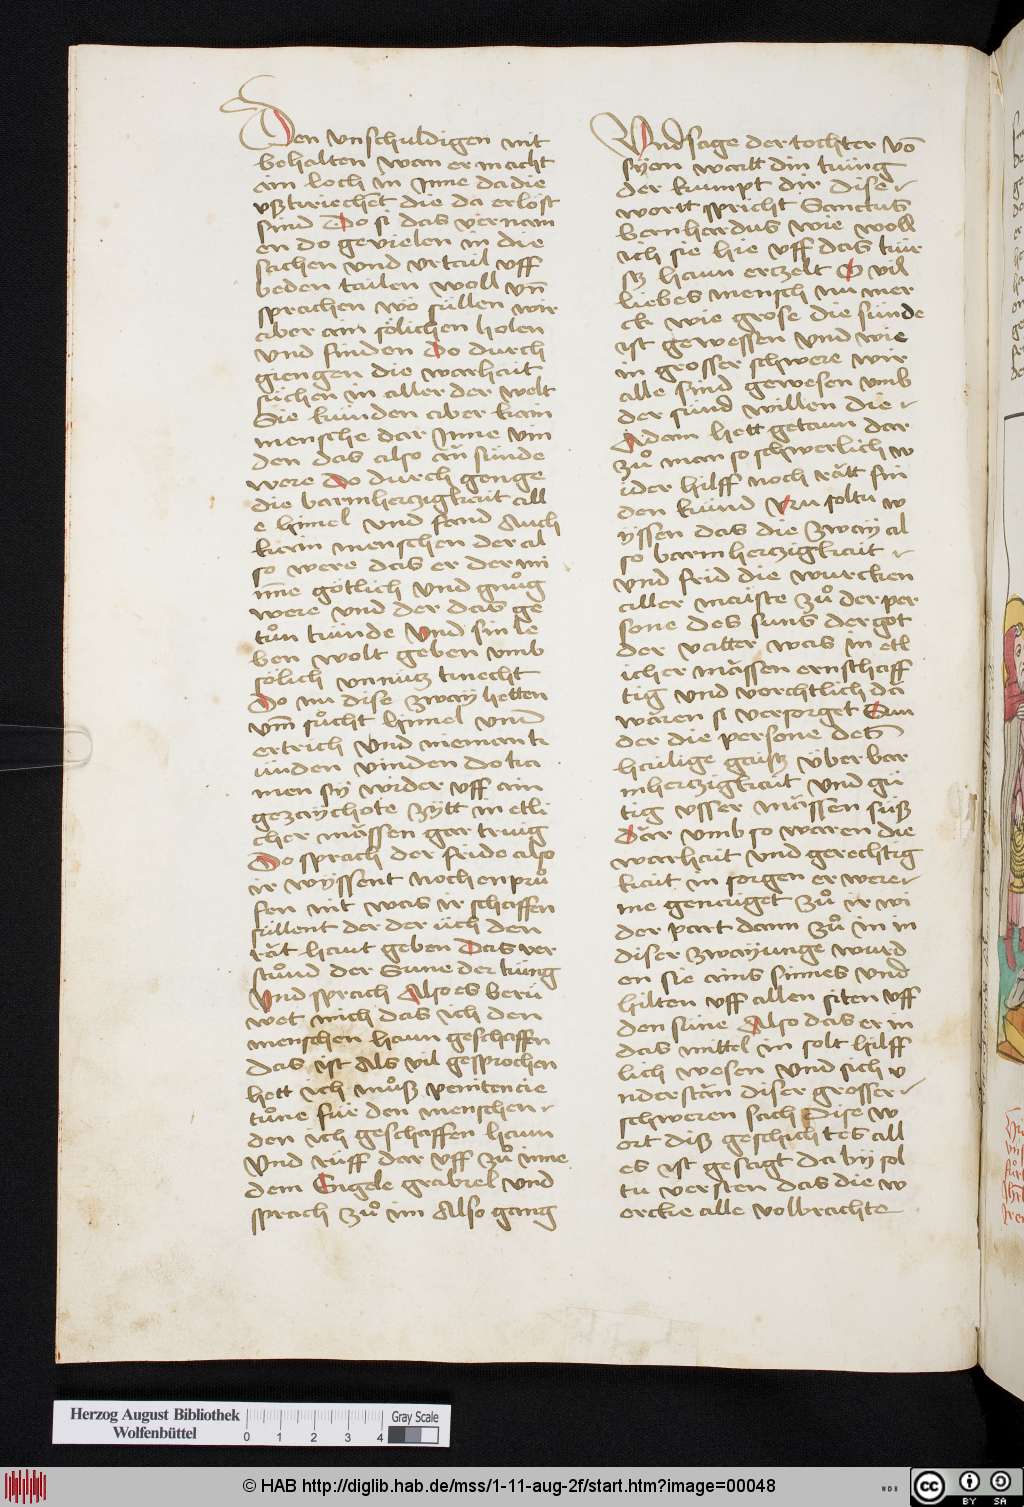 Den vnschuldigen nit
behalten wan er macht
ain loch in Inne da die
vsztriechet die da erlöst
sind Do si das vernam
en do gevielen in die
sachen vnd vrtail vff
beden tailen woll vn̄
sprachen wö süllen wir
aber ain sölichen holen
vnd finden Do durch
giengen die warhait
suchen in aller der welt
Sie kunden aber kain
mensche dar Inne vin
den das also än sünde
were Do durch genge
die barmherzigkait all
e himel vnd fand Auch
kain menschen der al
so were das er der mi
ne götlich vnd gnůg
were vnd der das ge
tůn künde Vnd sin le
ben wolt geben vmb
sölich vnnücz knecht
Do nu dise zway hetten
vm̄ sůcht himel vnd
ertrich vnd nieman k
ünden vinden do ka
men sÿ wider vff ain
gezaÿchote zÿtt in etli
cher mässen gar truig
Do sprach der fride also
ir wÿssent noch enprü
fen nit was ir schaffen
süllent der der üch den
rät haut geben Das ver
stůnd der Sune der küng
Vnd sprach Also es berü
wet mich das ich den
menschen haun geschaffen
das ist Als vil gesprochen
hett ich můsz penitencie
tůne für den menschen
den ich geschaffen haun
Vnd rüff dar vff zů inne
dem Engele grabiel vnd
sprach zů im Also gang
Vnd sage der tochter vō
sÿon wartt din küng
der kumpt dir dise
wortt spricht Sanctus
barnhardus wie woll
ich sie hie vff das kür
sz haun erczelt O vil
liebes mensch nu mer
ck wie grose die sünde
ist gewessen vnd wie
in grosser schwere wir
alle sind gewesen vmb
der sünd willen die
Adam hett getaun dar
zů man so schwerlich w
ider hilff noch rätt fin
den kund Nu soltu w
ÿssen das die zwaÿ al
so barmherczigkait
vnd frid die wurcken
aller maiste zů der per
sone des suns der got
der vatter was in etl
icher mässen ernschaff
tig vnd vorchtlich da
wären si versorget Sun
der die persone des
hailige gaisz über bar
mherczigkait vnd gü
tig vsser mässen süsz
Där vmb so waren die
warhait vnd gerechtig
kait in sorgen er were
me genaiget zů ir wi
der part dann zů in in
diser zwaÿunge wurd
en sie ains sinnes vnd
hilten vff allen siten vff
den süne Also das er in
das mittel in solt hilff
lich wesen vnd sich v
nderstän diser grosser
schweren sach Dise w
ort disz geschichtes all
es ist gesagt da bÿ sol
tu versten das die w
ercke alle volbrachte
Herzog August Bibliothek
Wolfenbüttel
0 1 2 3 4
Gray Scale
© HAB http://diglib.hab.de/mss/1-11-aug-2f/start.htm?image=00048
WDB
cc BY SA